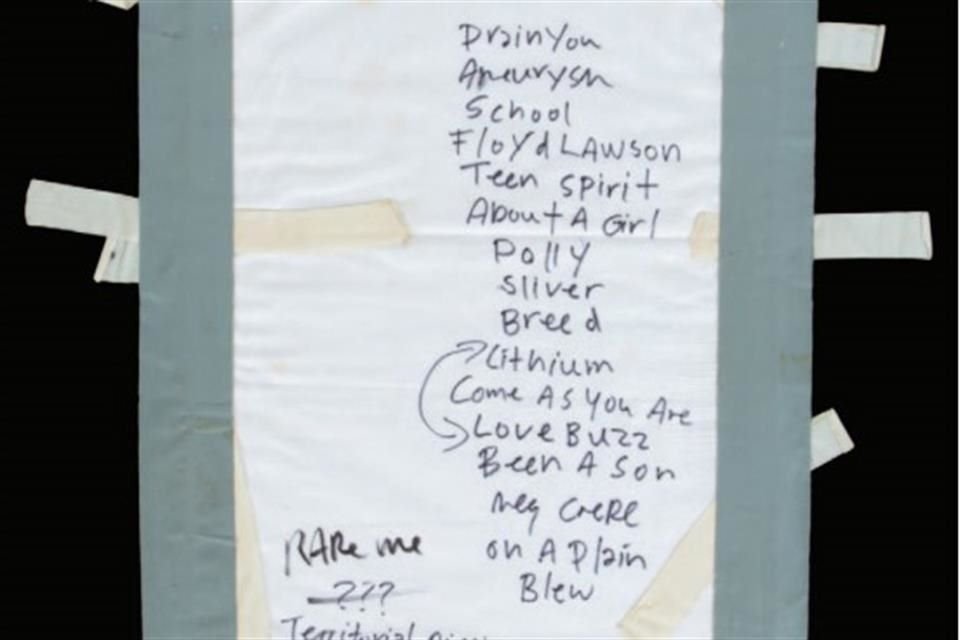 Drain You
Aneurysm
School
Floyd LAWSON
Teen Spirit
About A Girl
Polly
Sliver
Breed
Lithium
Come As You Are
Love Buzz
Been A Son
neg CREPE
on A Plain
Blew
RARe me
???
Territorial